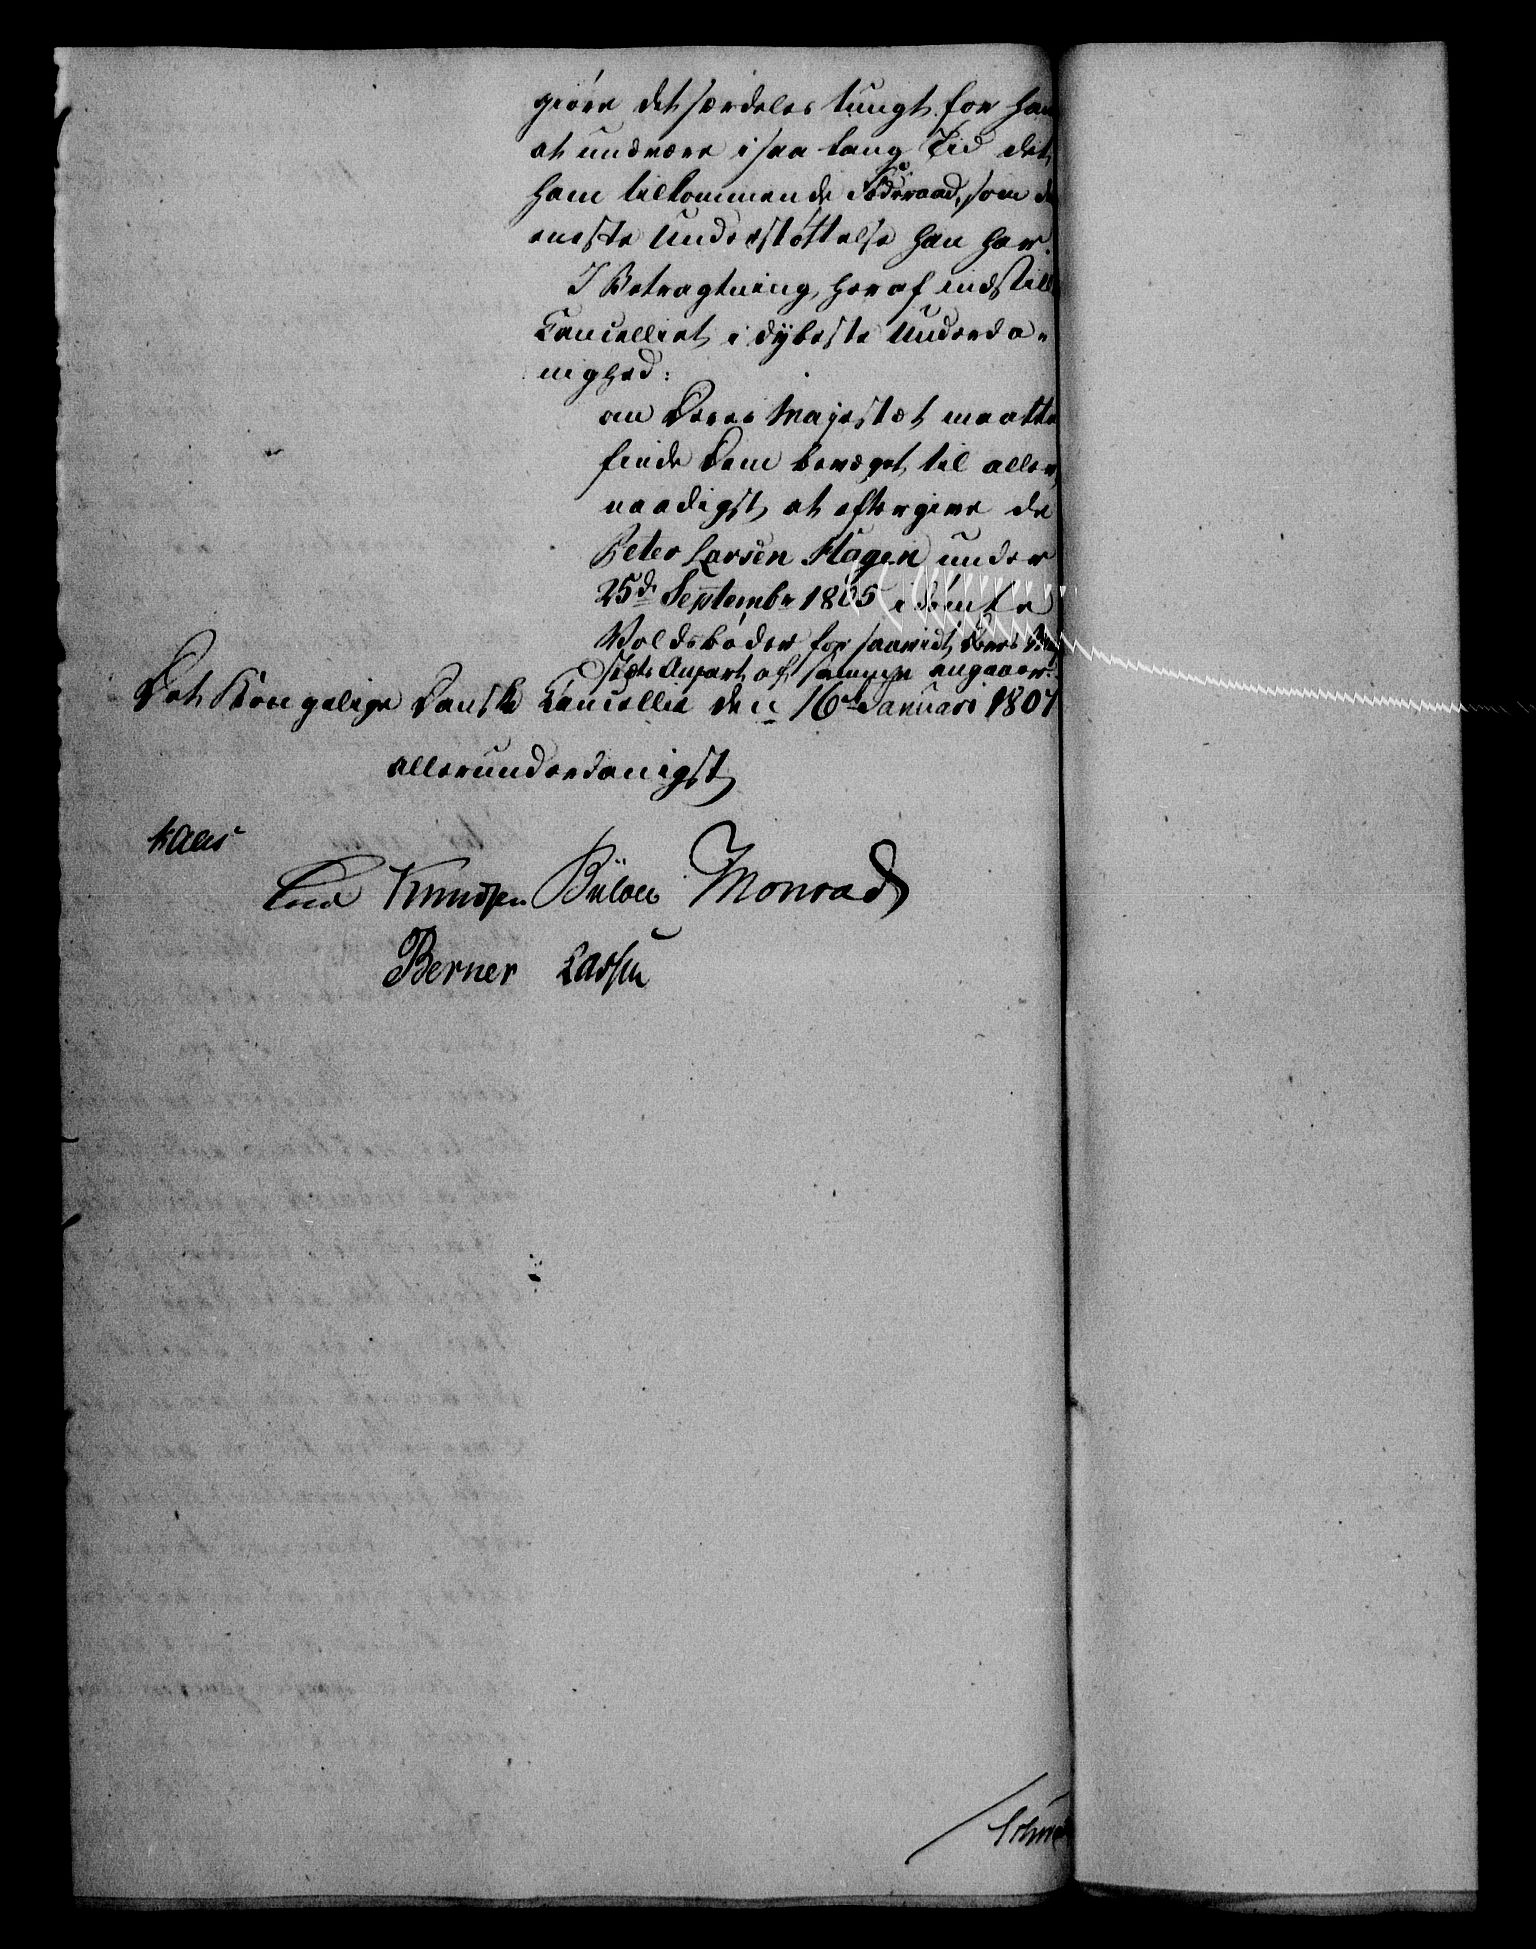 giøre det særdeles tungt for ham
at undvære i saa lang Tid det
ham tilkommende Föderaad, som
eneste Understøttelse han har.
I Betragtning heraf indstiller
Cancelliet i dybeste Underda-
nighed:
om Deres Majestæt maatte
finde Dem bevæget til aller-
naadigst at eftergive de
Peter Larsen Hagen under
25de Septembr 1805 idömte
Voldsböder for saavidt Deres
Anpart af samme angaaer.
Det Kongelige Danske Cancellie den 16de Januari 1807
allerunderdanigst
Kaas
Knudsen Bülow Monrad
Berner Lassen